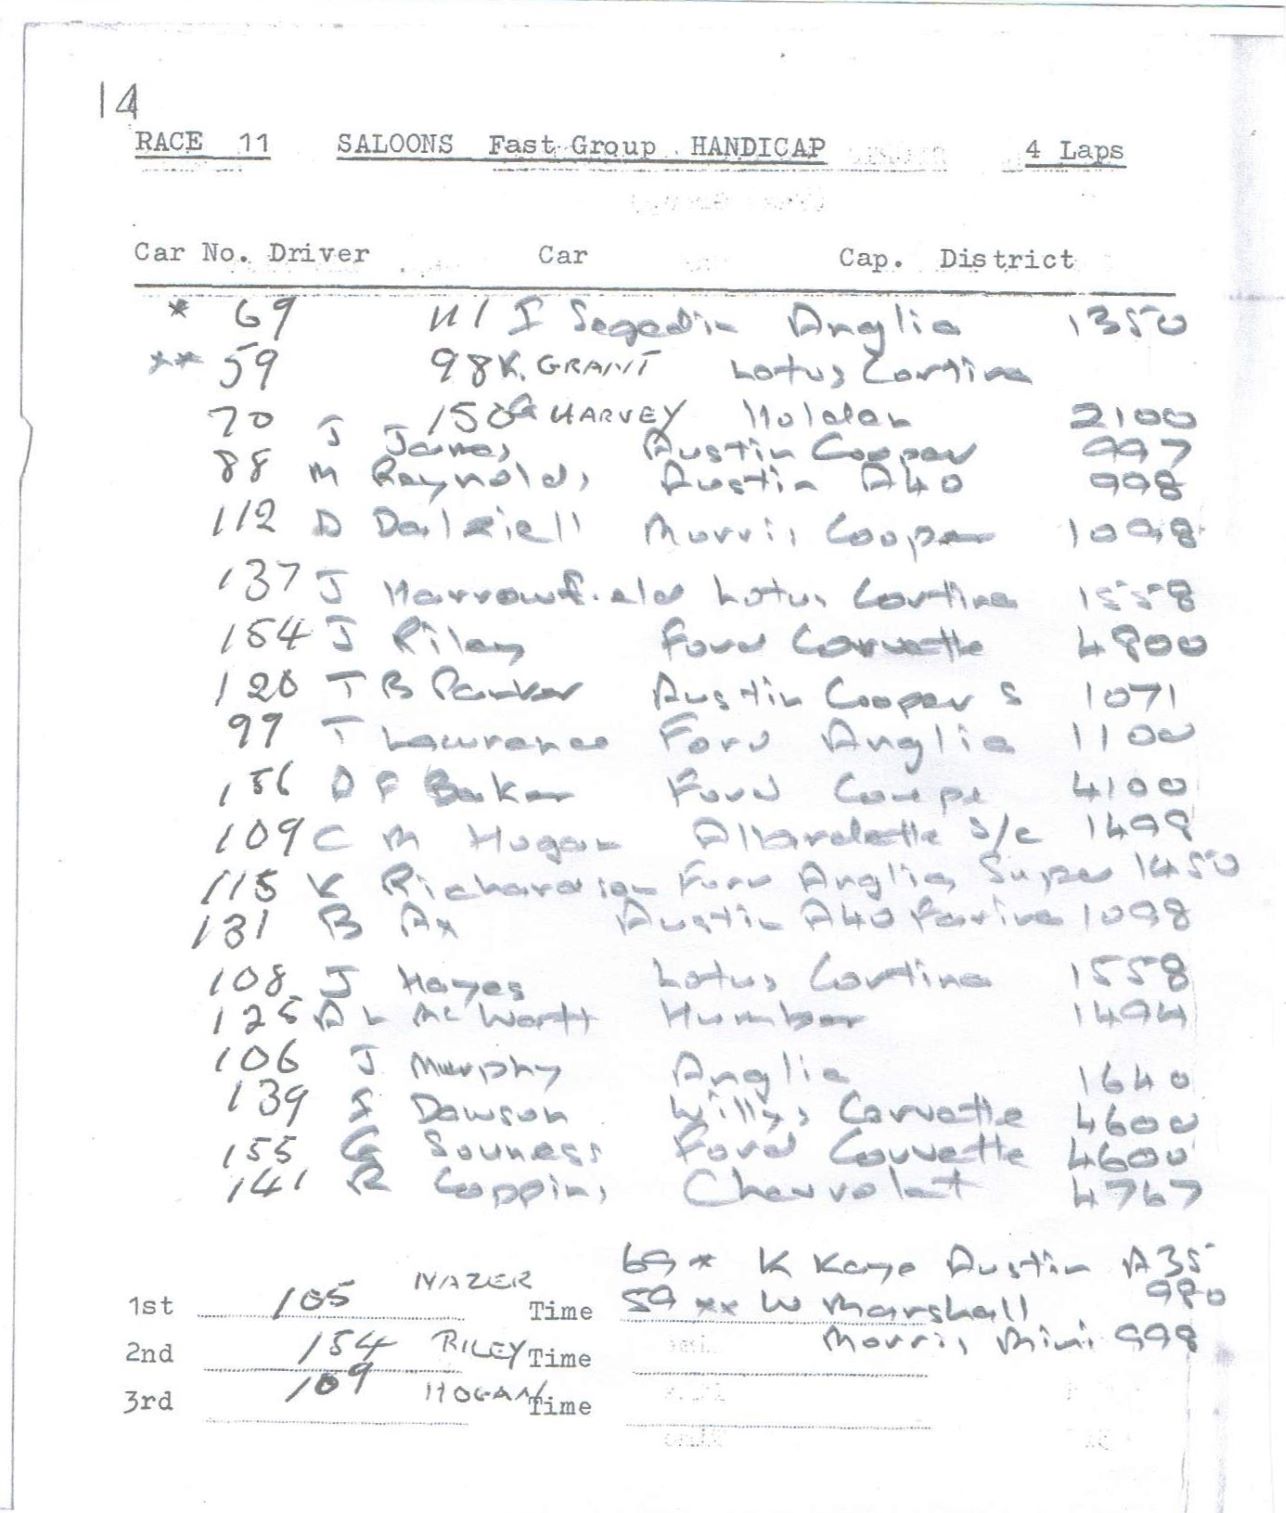 14
RACE 11 SALOONS Fast Group HANDICAP 4 Laps
Car No. Driver Car Cap. District
* 69 111 I Segedin Anglia 1350
** 59 98 K. GRANT Lotus Cortina
70 150 G HARVEY Holden 2100
J James Austin Cooper 997
88 M Reynolds Austin A40 998
112 D Dalziell Morris Cooper 1098
137 J Harrowfield Lotus Cortina 1558
154 J Riley Ford Corvette 4800
120 T B Parker Austin Cooper S 1071
99 T Lawrence Ford Anglia 1100
156 D F Baker Ford Coupe 4100
109 C M Hogan Allardette S/C 1498
115 K Richardson Ford Anglia Super 1450
131 B Ax Austin A40 Farina 1098
108 J Hayes Lotus Cortina 1558
125 A L McWartt Humber 1494
106 J Murphy Anglia 1640
139 S Dawson Willys Corvette 4600
155 G Souness Ford Corvette 4600
141 R Coppins Chevrolet 4767
69 * K Kaye Austin A35 980
1st 105 NAZER Time 59 ** W Marshall
2nd 154 RILEY Time Morris Mini 998
3rd 109 HOGAN Time